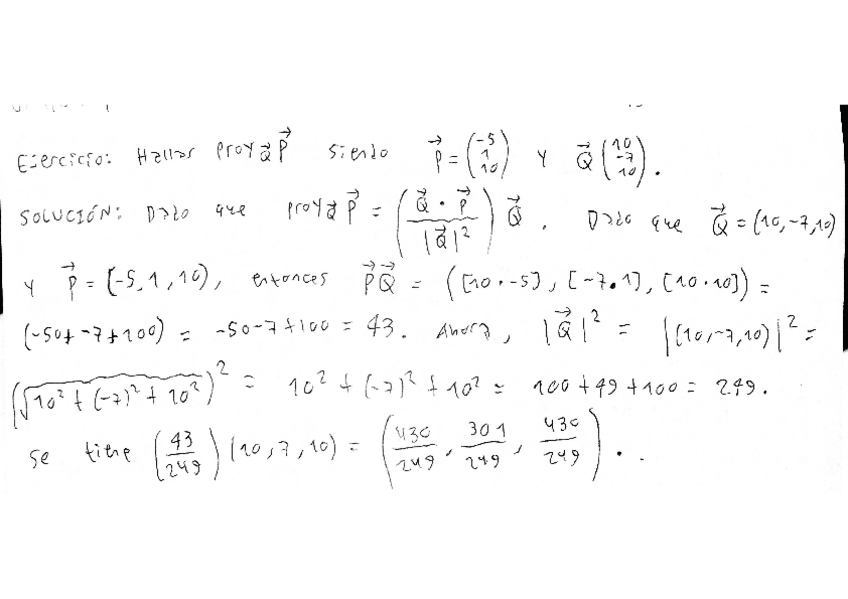 Ejercicio: Hallar proy Q⃗ P⃗ siendo P⃗ = (-5 1 10) y Q⃗ (10 -7 10).
SOLUCIÓN: Dado que proy Q⃗ P⃗ = (Q⃗ · P⃗ / |Q⃗|²) Q⃗. Dado que Q⃗ = (10,-7,10)
y P⃗ = (-5,1,10), entonces P⃗Q⃗ = ([10·-5], [-7·1], [10·10]) =
(-50+-7+100) = -50-7+100 = 43. Ahora, |Q⃗|² = |(10,-7,10)|² =
(√10²+(-7)²+10²)² = 10²+(-7)²+10² = 100+49+100 = 249.
se tiene (43/249)(10,7,10) = (430/249, 301/249, 430/249)..